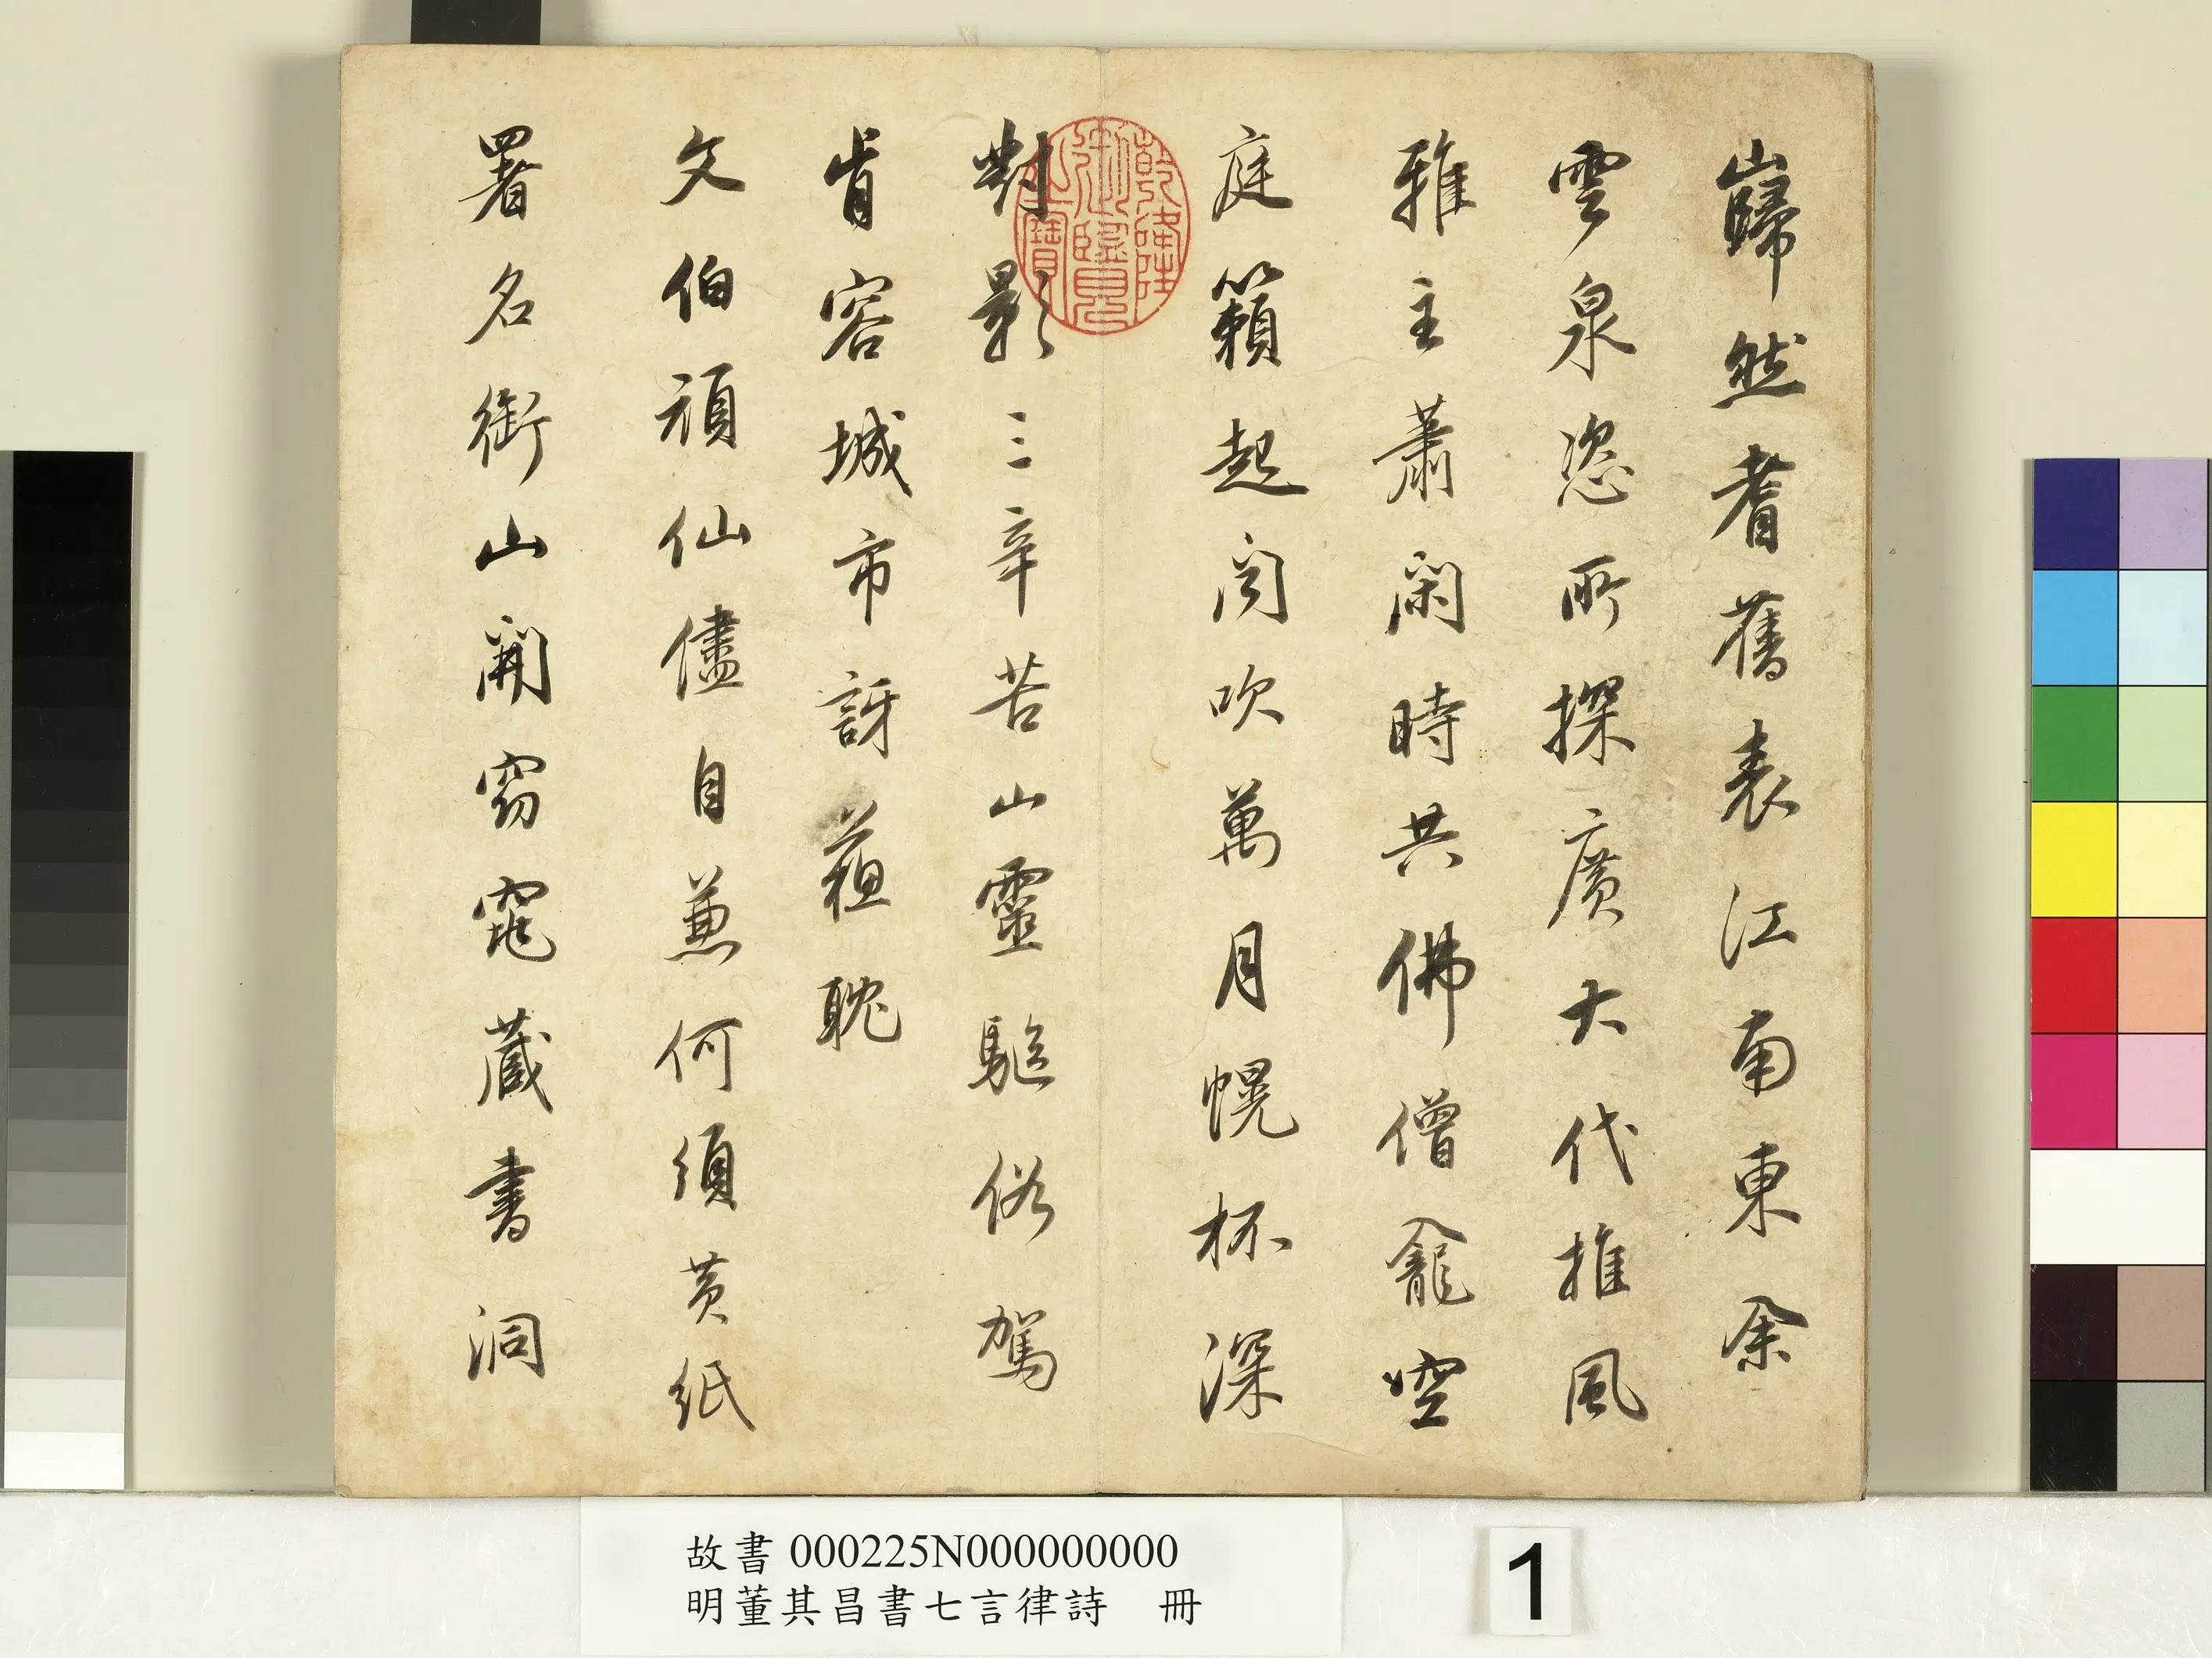 巋然耆舊表江南東佘
雲泉恣所探廣大代推風
雅主蕭閑時共佛僧龕空
庭籟起閔吹萬月幌杯深
對影三辛苦山靈驅俗駕
肯容城市訝菹耽
文伯頑仙儘自兼何須黃紙
署名銜山開窈窕藏書洞
乾隆御覽之寶
故書 000225N000000000
明董其昌書七言律詩 冊
1